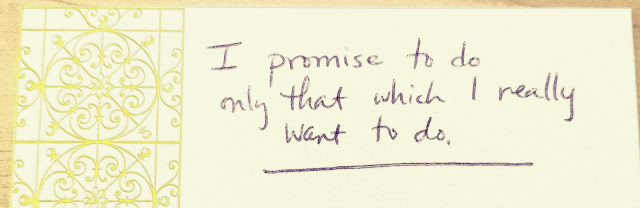 I promise to do
only that which I really
want to do.